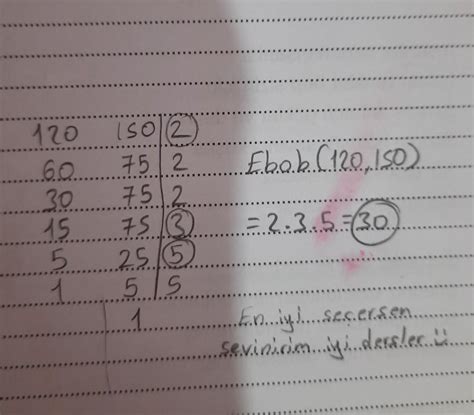 120 150 2
60 75 2
30 75 2
15 75 3
5 25 5
1 5 5
1
Ebob(120,150)
=2.3.5=30
En iyi seçersen
sevinirim iyi dersler :)